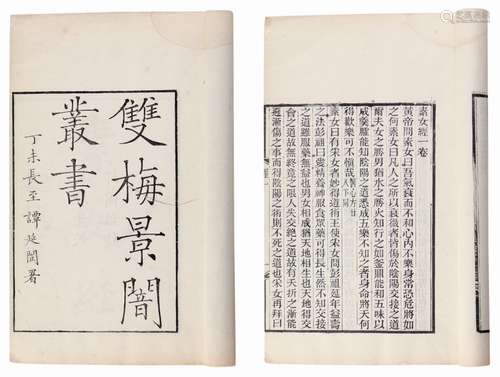 雙梅景闇
叢書
丁未長至譚延闓署
素女經一卷
黃帝問素女曰吾氣衰而不和心內不樂身常恐危將如
之何素女曰凡人之所以衰微者皆傷於陰陽交接之道
爾夫女之勝男猶水之勝火知行之如釜鼎能和五味以
成羹臛能知陰陽之道悉成五樂不知之者身命將夭何
得歡樂可不慎哉
素女曰有采女者妙得道術王使采女問彭祖延年益壽
之法彭祖曰愛精養神服食眾藥可得長生然不知交接
之道雖服藥無益也男女相成猶天地相生也天地得交
會之道故無終竟之限人失交接之道故有夭折之漸能
避漸傷之事而得陰陽之術則不死之道也采女再拜曰